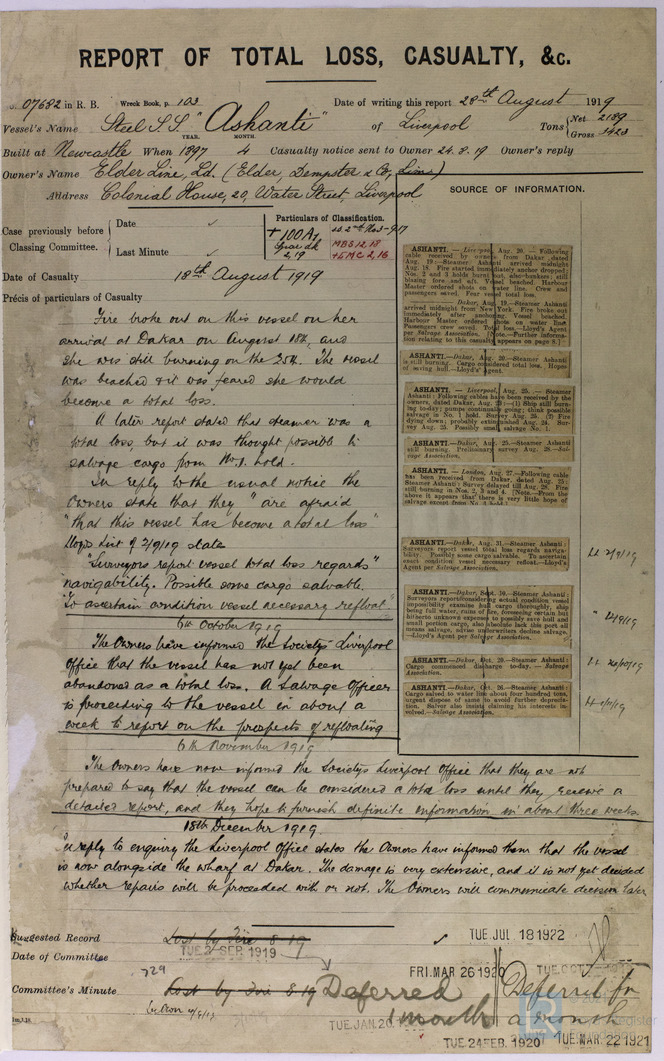 REPORT OF TOTAL LOSS, CASUALTY, &c.
07682 in R. B. Wreck Book, p. 103 Date of writing this report 28th August 1919
Vessel's Name Steel S.S. "Ashanti" of Liverpool Tons Net 2189
YEAR. MONTH. Gross 3423
Built at Newcastle When 1897 4 Casualty notice sent to Owner 24.8.19 Owner's reply
Owner's Name Elder Line, Ld. (Elder, Dempster & Co, Lim)
Address Colonial House, 20, Water Street, Liverpool
SOURCE OF INFORMATION.
Case previously before Classing Committee.
Date
Last Minute
Particulars of Classification.
+100A1
2,19
MBS 12,18
+LMC 2,16
Date of Casualty 18th August 1919
Précis of particulars of Casualty
Fire broke out on this vessel on her
arrival at Dakar on August 18th, and
she was still burning on the 25th. The vessel
was beached & it was feared she would
become a total loss.
A later report stated that steamer was a
total loss, but it was thought possible to
salvage cargo from No.1. hold.
In reply to the usual notice the
Owners state that they "are afraid
"that this vessel has become a total loss"
Lloyds List of 2/9/19 state
"Surveyors report vessel total loss regards"
"navigability. Possible some cargo salvable.
"To ascertain condition vessel necessary refloat."
6th October 1919
The Owners have informed the Society's Liverpool
Office that the vessel has not yet been
abandoned as a total loss. A Salvage Officer
is proceeding to the vessel in about a
week to report on the prospects of refloating
6th November 1919
The Owners have now informed the Society's Liverpool Office that they are not
prepared to say that the vessel can be considered a total loss until they receive a
detailed report, and they hope to furnish definite information in about three weeks.
18th December 1919.
In reply to enquiry the Liverpool Office states the Owners have informed them that the vessel
is now alongside the wharf at Dakar. The damage is very extensive, and it is not yet decided
whether repairs will be proceeded with or not. The Owners will communicate decision later
ASHANTI.—Liverpool, Aug. 20.—Following
cable received by owners from Dakar, dated
Aug. 19:—Steamer Ashanti arrived midnight
Aug. 18. Fire started immediately anchor dropped;
Nos. 2 and 3 holds burnt out, also bunkers; still
blazing fore and aft. Vessel beached. Harbour
Master ordered shots on water line. Crew and
passengers saved. Fear vessel total loss.
—Dakar, Aug. 19.—Steamer Ashanti
arrived midnight from New York. Fire broke out
immediately after anchoring. Vessel beached.
Harbour Master ordered shots on water line
Passengers crew saved. Total loss—Lloyd's Agent
per Salvage Association. [Note.—Further information
relating to this casualty appears on page 8.]
ASHANTI.—Dakar, Aug. 20.—Steamer Ashanti
is still burning. Cargo considered total loss. Hopes
of saving hull.—Lloyd's Agent.
ASHANTI.—Liverpool, Aug. 25.—Steamer
Ashanti: Following cables have been received by the
owners, dated Dakar, Aug. 23:—(1) Ship still burning
to-day; pumps continually going; think possible
salvage in No. 1 hold. Survey Aug. 26. (2) Fire
dying down; probably extinguished Aug. 24. Survey
Aug. 25. Possibly small salvage No. 1.
ASHANTI.—Dakar, Aug. 25.—Steamer Ashanti
still burning. Preliminary survey Aug. 26.—Salvage
Association.
ASHANTI.—London, Aug. 27.—Following cable
has been received from Dakar, dated Aug. 25:
Steamer Ashanti: Survey delayed till Aug. 28. Fire
still burning in Nos. 2, 3 and 4. [Note.—From the
above it appears that there is very little hope of
salvage except from No. 1 hold.]
ASHANTI.—Dakar, Aug. 31.—Steamer Ashanti:
Surveyors report vessel total loss regards navigability.
Possibly some cargo salvable. To ascertain
exact condition vessel necessary refloat.—Lloyd's
Agent per Salvage Association.
LL 2/9/19
ASHANTI.—Dakar, Sept. 10.—Steamer Ashanti:
Surveyors report considering actual condition vessel
impossibility examine hull cargo thoroughly, ship
being full water, ruins of fire, foreseeing certain but
hitherto unknown expenses to possibly save hull and
small portion cargo, also absolute lack this port all
means salvage, advise underwriters decline salvage.
—Lloyd's Agent per Salvage Association.
" 12/9/19
ASHANTI.—Dakar, Oct. 20.—Steamer Ashanti:
Cargo commenced discharge to-day.—Salvage
Association.
ASHANTI.—Dakar, Oct. 26.—Steamer Ashanti:
Cargo salved to water line about four hundred tons,
urgent dispose of same to avoid further depreciation.
Salvor also insists claiming his interests involved.—Salvage
Association.
Suggested Record Lost by Fire 8.19
TUE 2 SEP. 1919
TUE JUL 18 1922
Date of Committee
FRI. MAR 26 1920
729
Committee's Minute Lost by Fire 8.19 Deferred
1 month
Deferred for
a month
TUE. JAN. 20.
TUE. 24 FEB. 1920
TUE. MAR. 22 1921